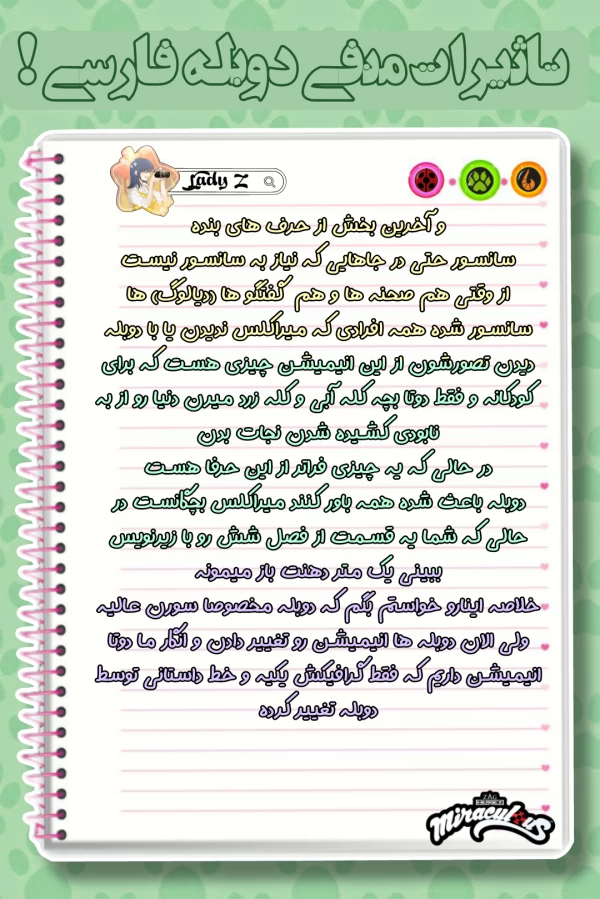 تاثیرات منفی دوبله فارسی!
Lady Z
و آخرین بخش از حرف های بنده
سانسور حتی در جاهایی که نیاز به سانسور نیست
از وقتی هم صحنه ها و هم گفتگو ها (دیالوگ) ها
سانسور شده همه افرادی که میراکلس ندیدن یا با دوبله
دیدن تصورشون از این انیمیشن چیزی هست که برای
کودکانه و فقط دوتا بچه کله آبی و کله زرد میرن دنیا رو از به
نابودی کشیده شدن نجات بدن
در حالی که یه چیزی فراتر از این حرفا هست
دوبله باعث شده همه باور کنند میراکلس بچگانست در
حالی که شما یه قسمت از فصل شش رو با زیرنویس
ببینی یک متر دهنت باز میمونه
خلاصه اینارو خواستم بگم که دوبله مخصوصا سورن عالیه
ولی الان دوبله ها انیمیشن رو تغییر دادن و انگار ما دوتا
انیمیشن داریم که فقط گرافیکش یکیه و خط داستانی توسط
دوبله تغییر کرده
ZAG
HEROEZ
Miraculous